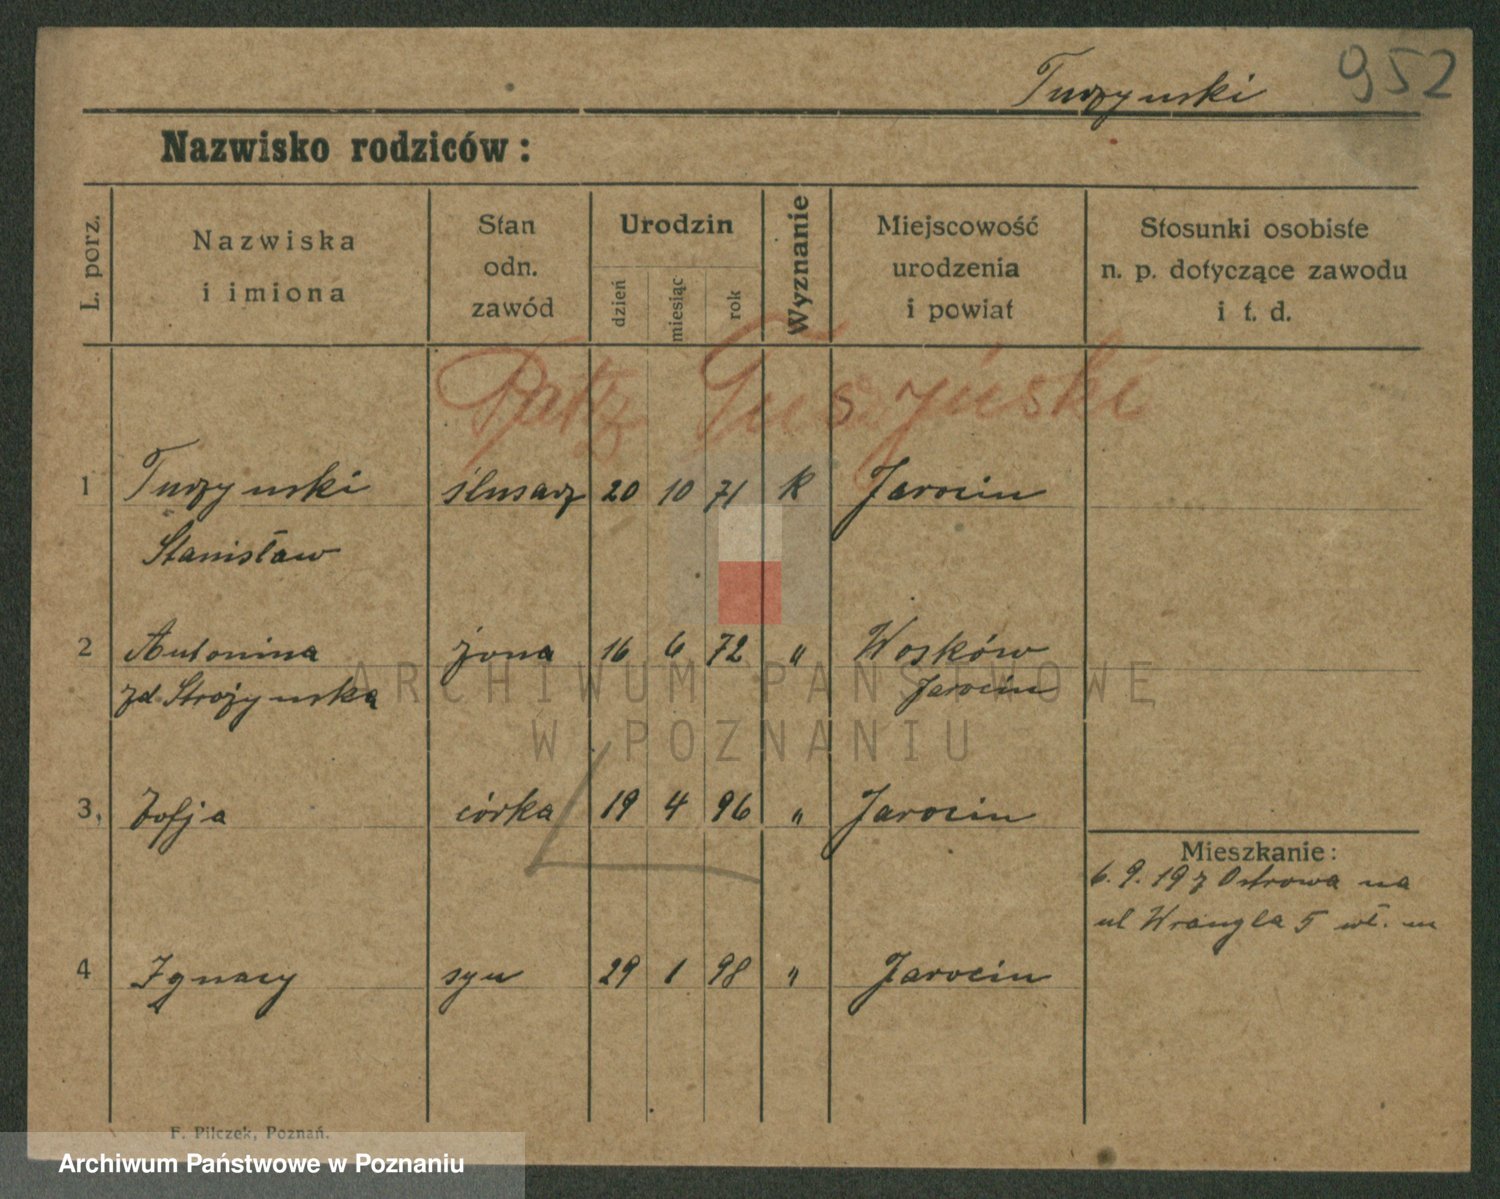 Turzynski 952
Nazwisko rodziców:
L. porz. Nazwiska i imiona Stan odn. zawód Urodzin dzień miesiąc rok Wyznanie Miejscowość urodzenia i powiat Stosunki osobiste n. p. dotyczące zawodu i t. d.
Patz Tuszyński
1 Turzynski ślusarz 20 10 71 k Jarocin
Stanisław
2 Antonina żona 16 6 72 " Wosków
zd. Strożynska Jarocin
3, Zofja córka 19 4 96 " Jarocin
Mieszkanie:
6.9.19 z Ostrowa na
ul Wrangla 5 wł. m
4 Ignacy syn 29 1 98 " Jarocin
F. Pilczek, Poznań.
ARCHIWUM PAŃSTWOWE
W POZNANIU
Archiwum Państwowe w Poznaniu